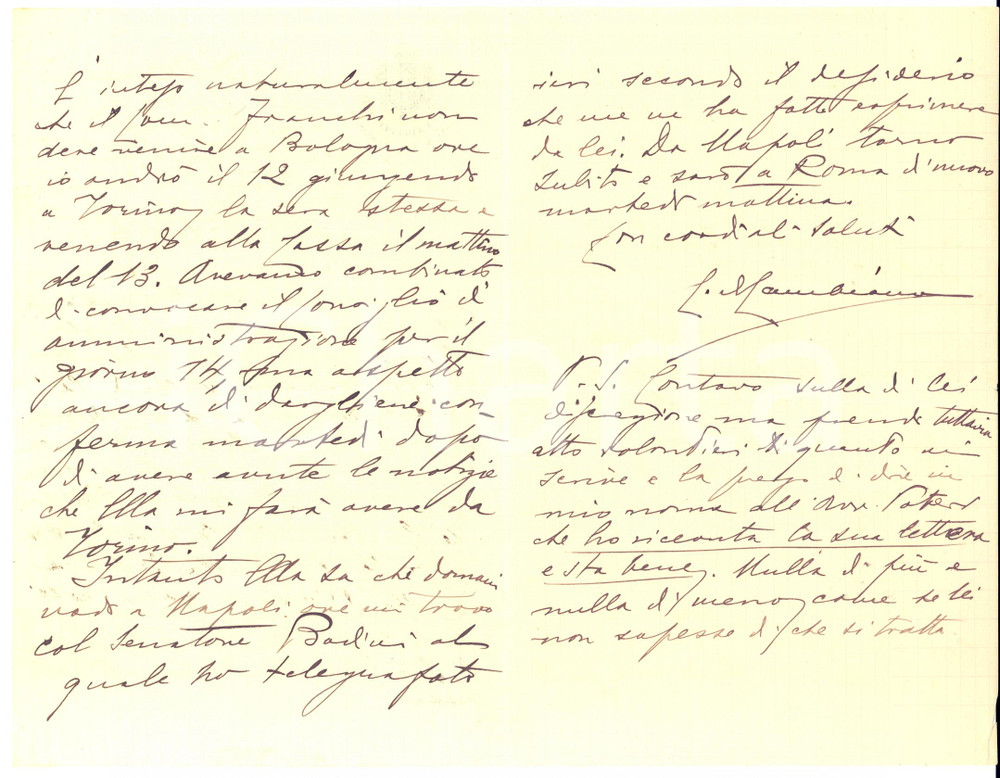 È inteso naturalmente
che il Com. Franchi non
deve venire a Bologna ove
io andrò il 12 giungendo
a Torino la sera stessa e
venendo alla Cassa il mattino
del 13. Avevamo combinato
di convocare il Consiglio d'
amministrazione per il
giorno 14, ma aspetto
ancora di dargliene con-
ferma martedì dopo
di avere avute le notizie
che Ella mi farà avere da
Torino.
Intanto Ella sa che domani
vado a Napoli ove mi trovo
col Senatore Badini al
quale ho telegrafato
ieri secondo il desiderio
che me ne ha fatto esprimere
da lei. Da Napoli torno
subito e sarò a Roma di nuovo
martedì mattina.
Con cordiali saluti

P. S. Contavo sulla di lei
discrezione ma prendo tuttavia
atto volontieri di quanto mi
scrive e la prego di dire in
mio nome all' Avv.
che ho ricevuta la sua lettera
e sta bene. Nulla di più e
nulla di meno, come se lei
non sapesse di che si tratta